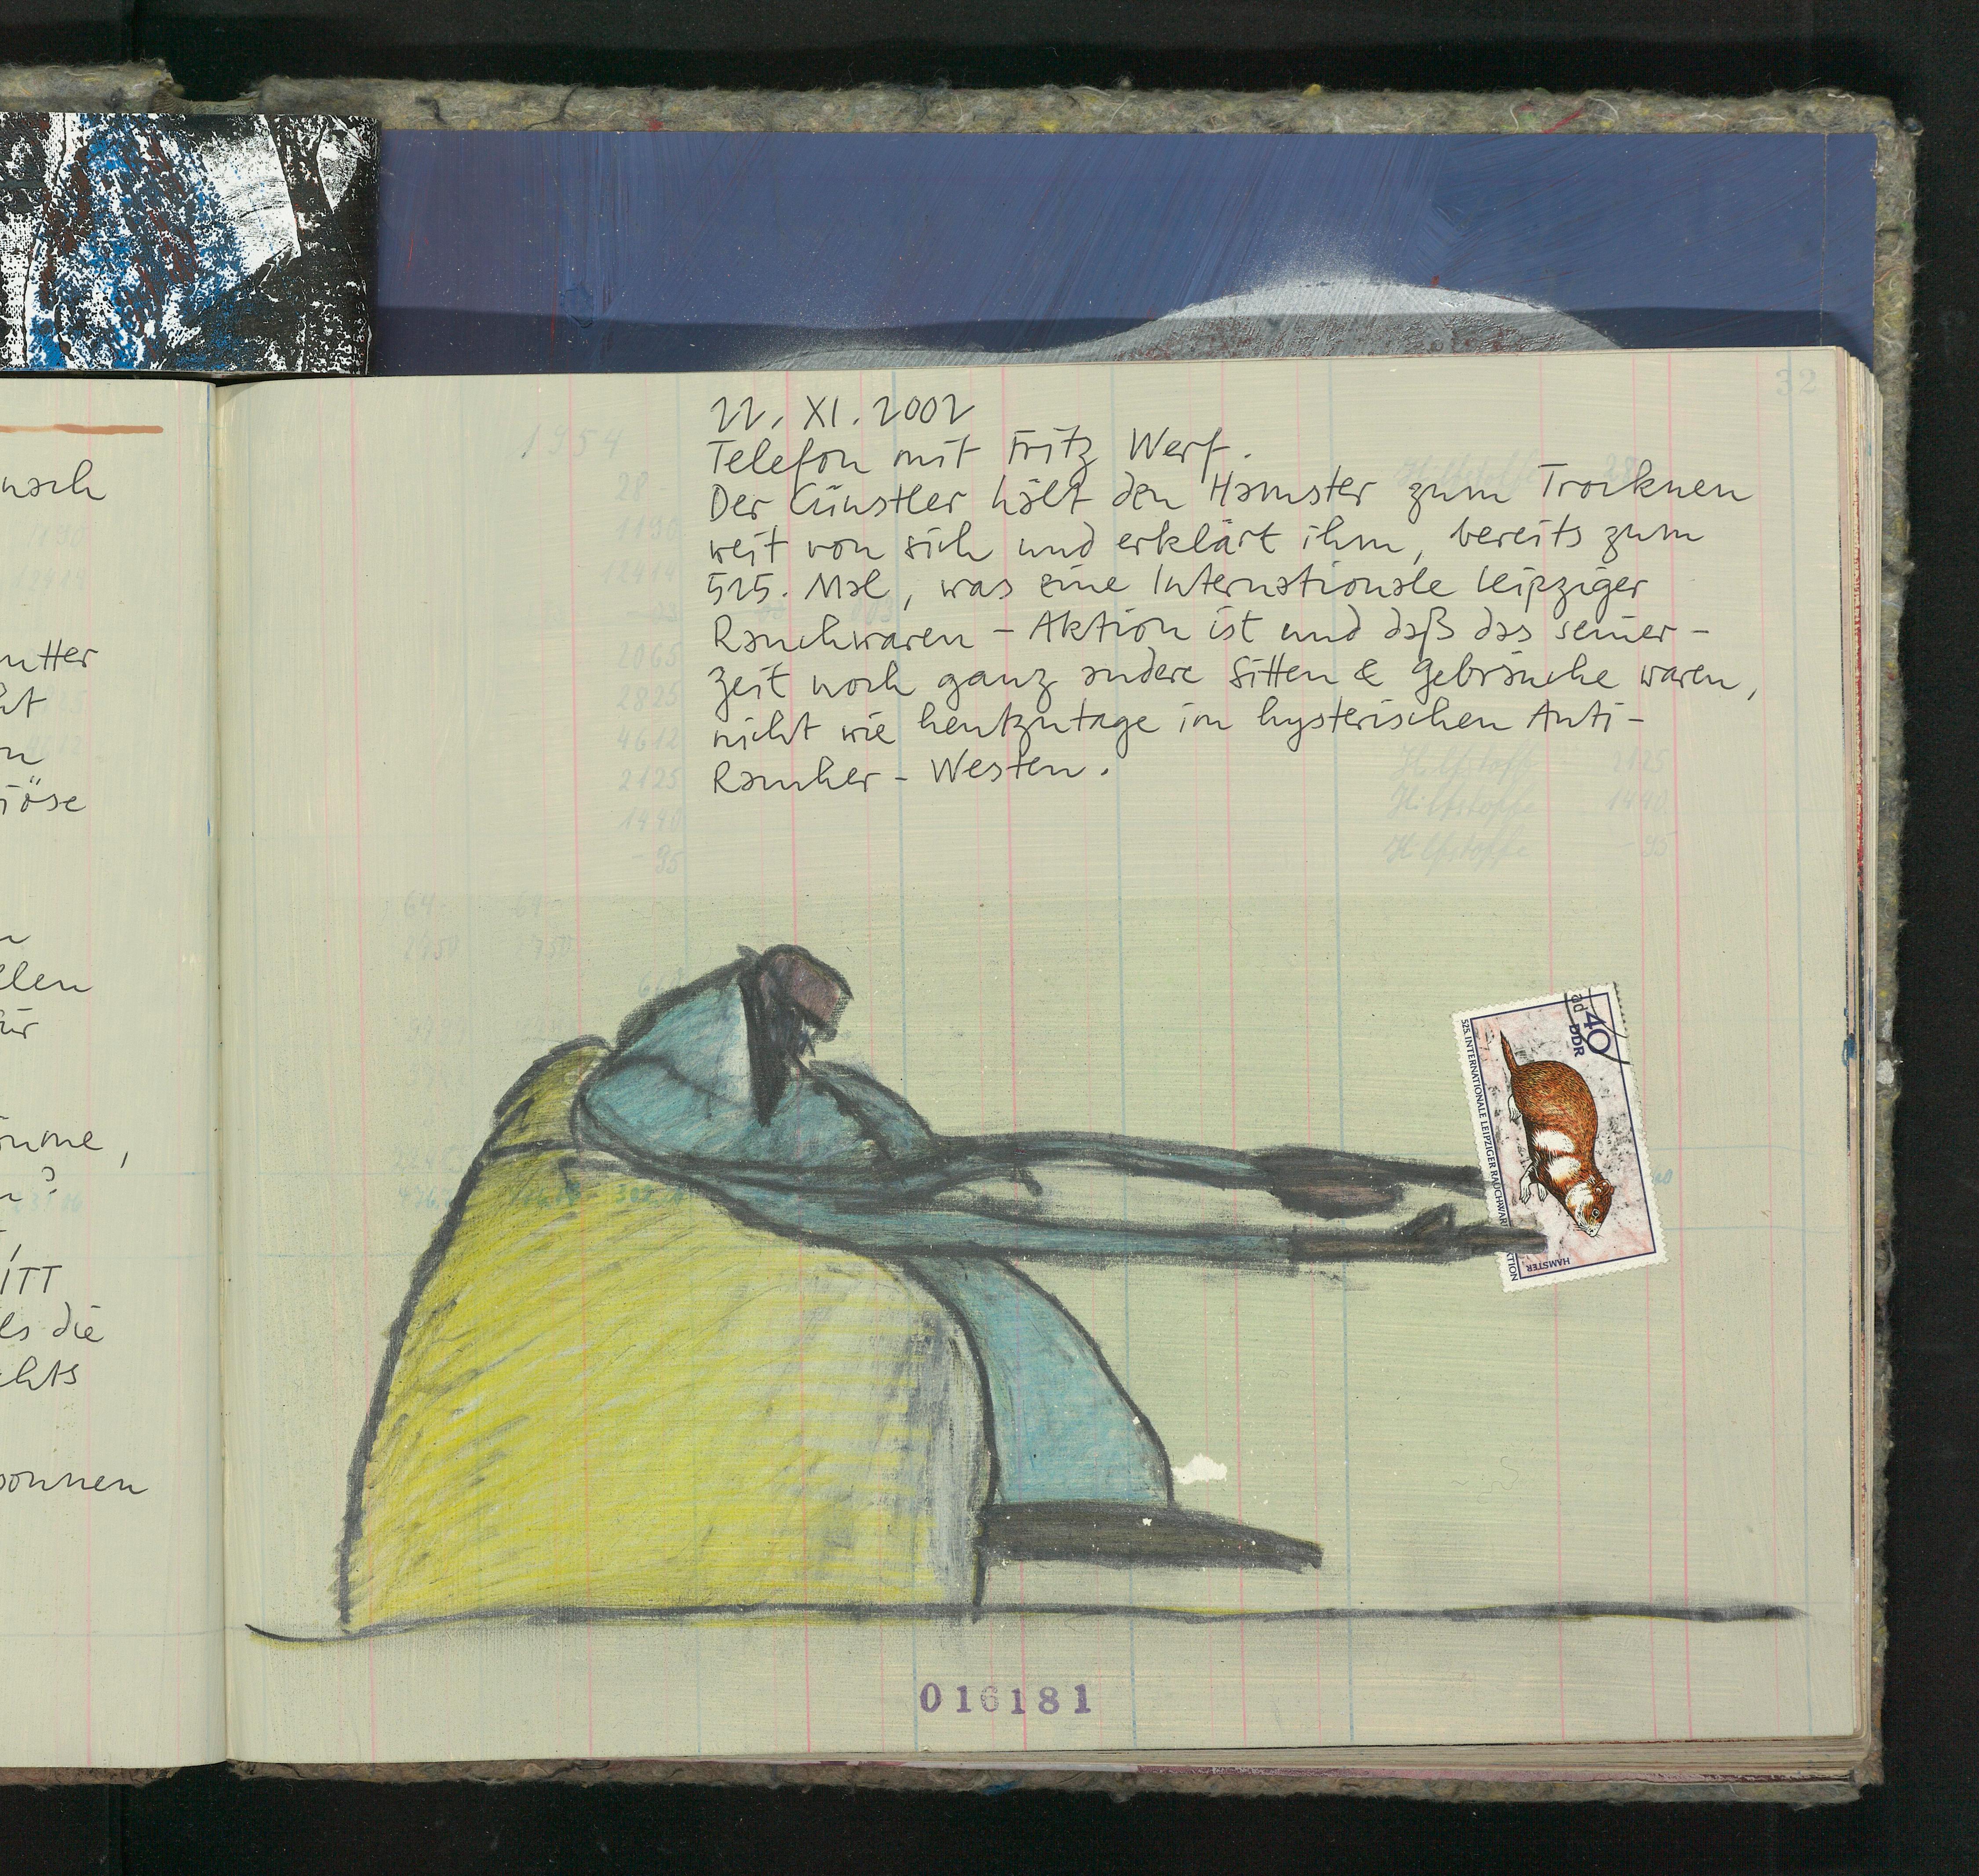 nach
mutter
ht
n
iöse
llen
für
äume,
n?
ITT
ls die
chts
sonnen
32
22. XI. 2002
Telefon mit Fritz Werf.
Der Cünstler hält den Hamster zum Trocknen
weit von sich und erklärt ihm, bereits zum
525. Mal, was eine Internationale Leipziger
Rauchwaren-Aktion ist und daß das seiner-
zeit noch ganz andere Sitten & Gebräuche waren,
nicht wie heutzutage im hysterischen Anti-
Raucher-Westen.
1954
28-
1190
12414
2065
2825
4612
2125
1490
- 95
Hilfstoffe 2125
Hilfstoffe 1490
Hilfstoffe - 95
40
DDR
525. INTERNATIONALE LEIPZIGER RAUCHWAR
TION
HAMSTER
016181